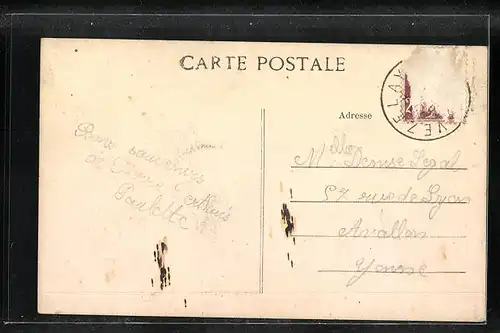 CARTE POSTALE
VEZELAY
Adresse
Bons souvenirs
de
Paulette
Mlle Denise Legal
57 rue de Lyon
Avallon
Yonne